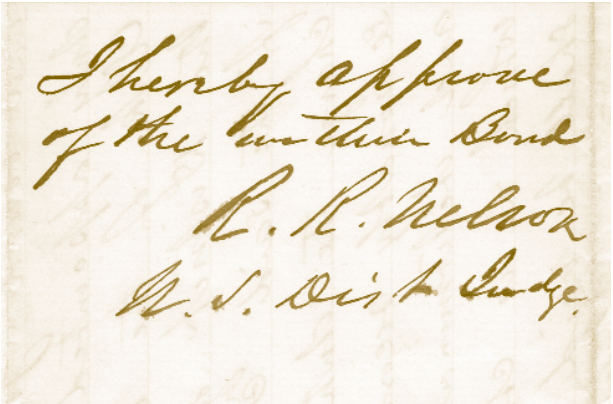 I hereby approve
of the within Bond
R. R. Nelson
U. S. Dist Judge.